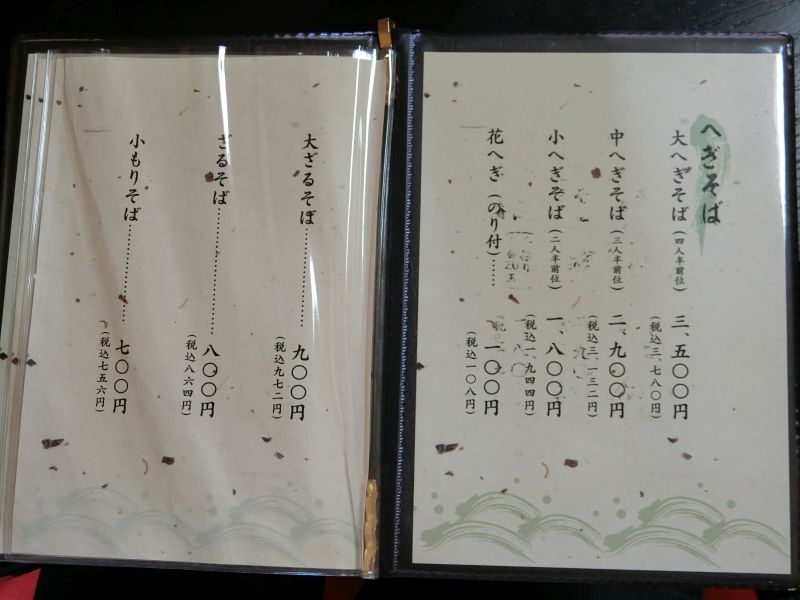 へぎそば
大へぎそば（四人半前位） 三、五〇〇円
（税込三、七八〇円）
中へぎそば（三人半前位） 二、九〇〇円
（税込三、一三二円）
小へぎそば（二人半前位） 一、八〇〇円
（税込一、九四四円）
花へぎ（のり付）…… 一〇〇円
（税込一〇八円）
大ざるそば…………… 九〇〇円
（税込九七二円）
ざるそば…………… 八〇〇円
（税込八六四円）
小もりそば…………… 七〇〇円
（税込七五六円）